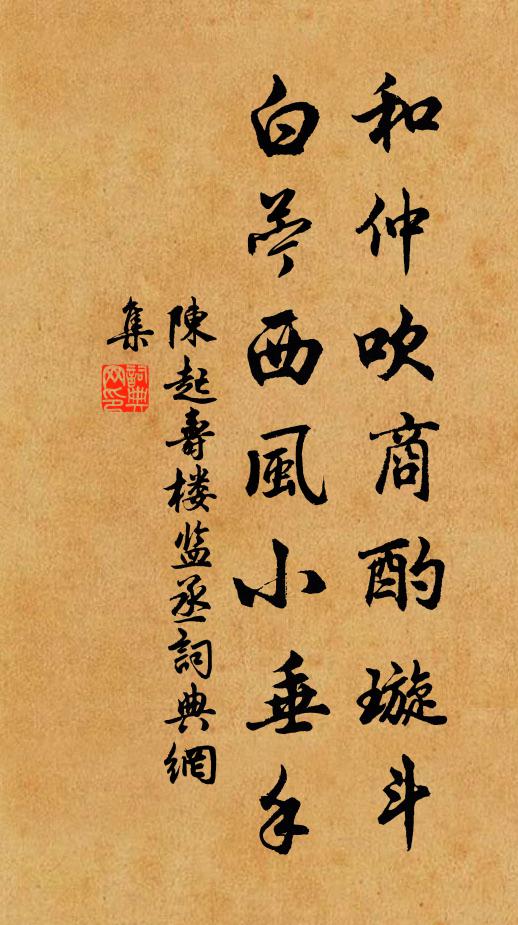 和仲吹商酌璇斗
白苧西風小垂手
陳起壽楼监丞詞典網
集
詞典網印